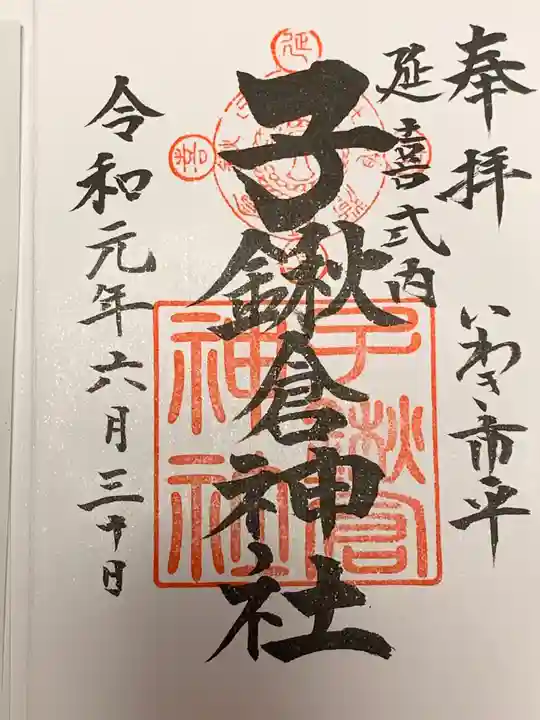 奉拝　いわき市平
延喜式内
子鍬倉神社
令和元年六月三十日
子鍬倉
神社
延
喜